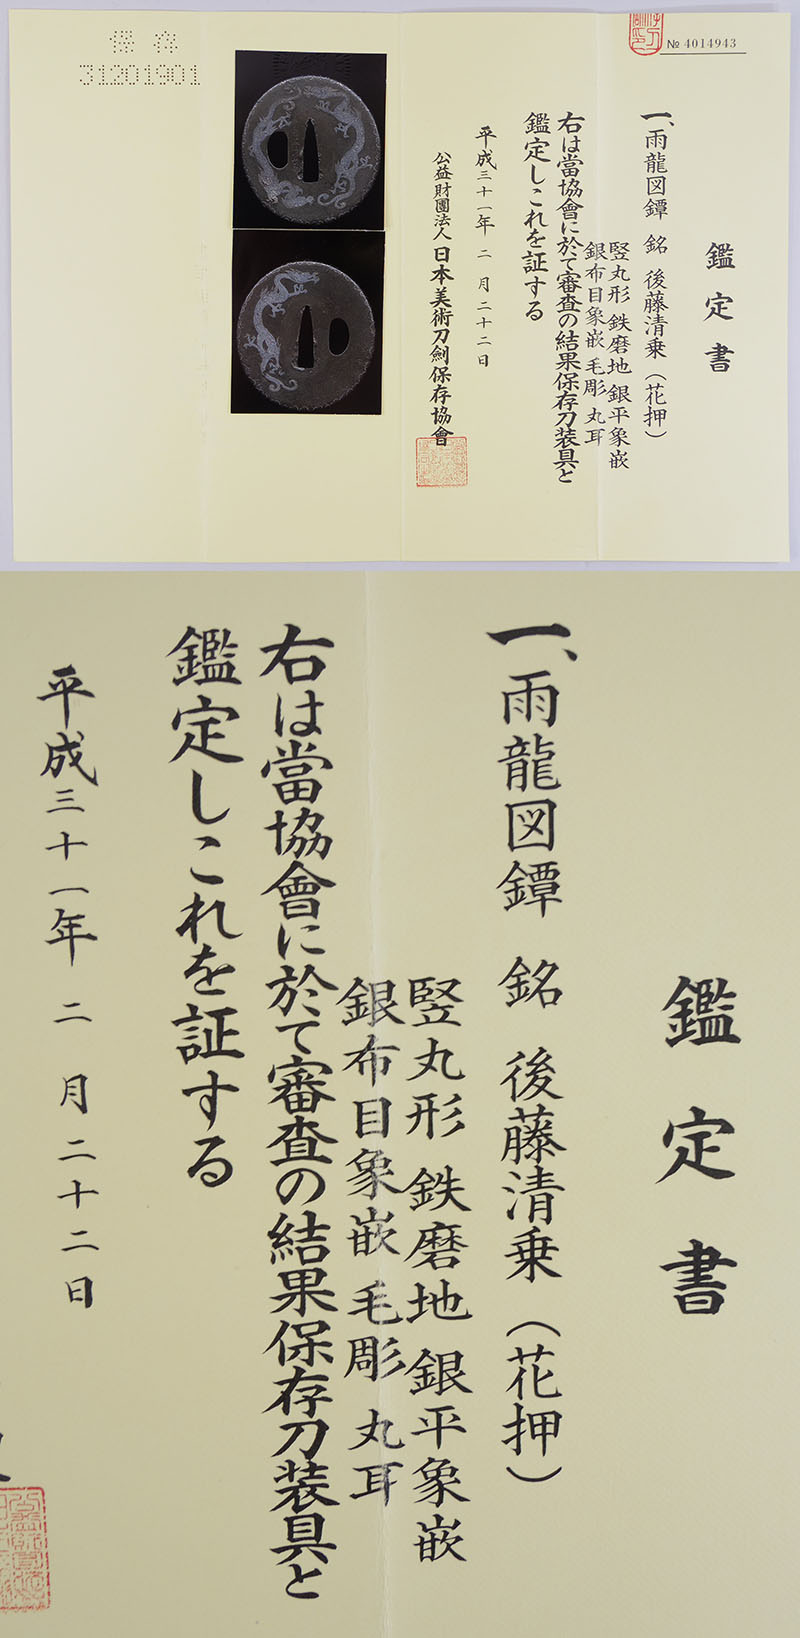 保存
31201901
№ 4014943
鑑定書
一、雨龍図鐔 銘 後藤清乗（花押）
竪丸形 鉄磨地 銀平象嵌
銀布目象嵌 毛彫 丸耳
右は當協會に於て審査の結果保存刀装具と
鑑定しこれを証する
平成三十一年 二 月 二十二日
公益財團法人 日本美術刀劍保存協會
鑑定書
一、雨龍図鐔 銘 後藤清乗（花押）
竪丸形 鉄磨地 銀平象嵌
銀布目象嵌 毛彫 丸耳
右は當協會に於て審査の結果保存刀装具と
鑑定しこれを証する
平成三十一年 二 月 二十二日